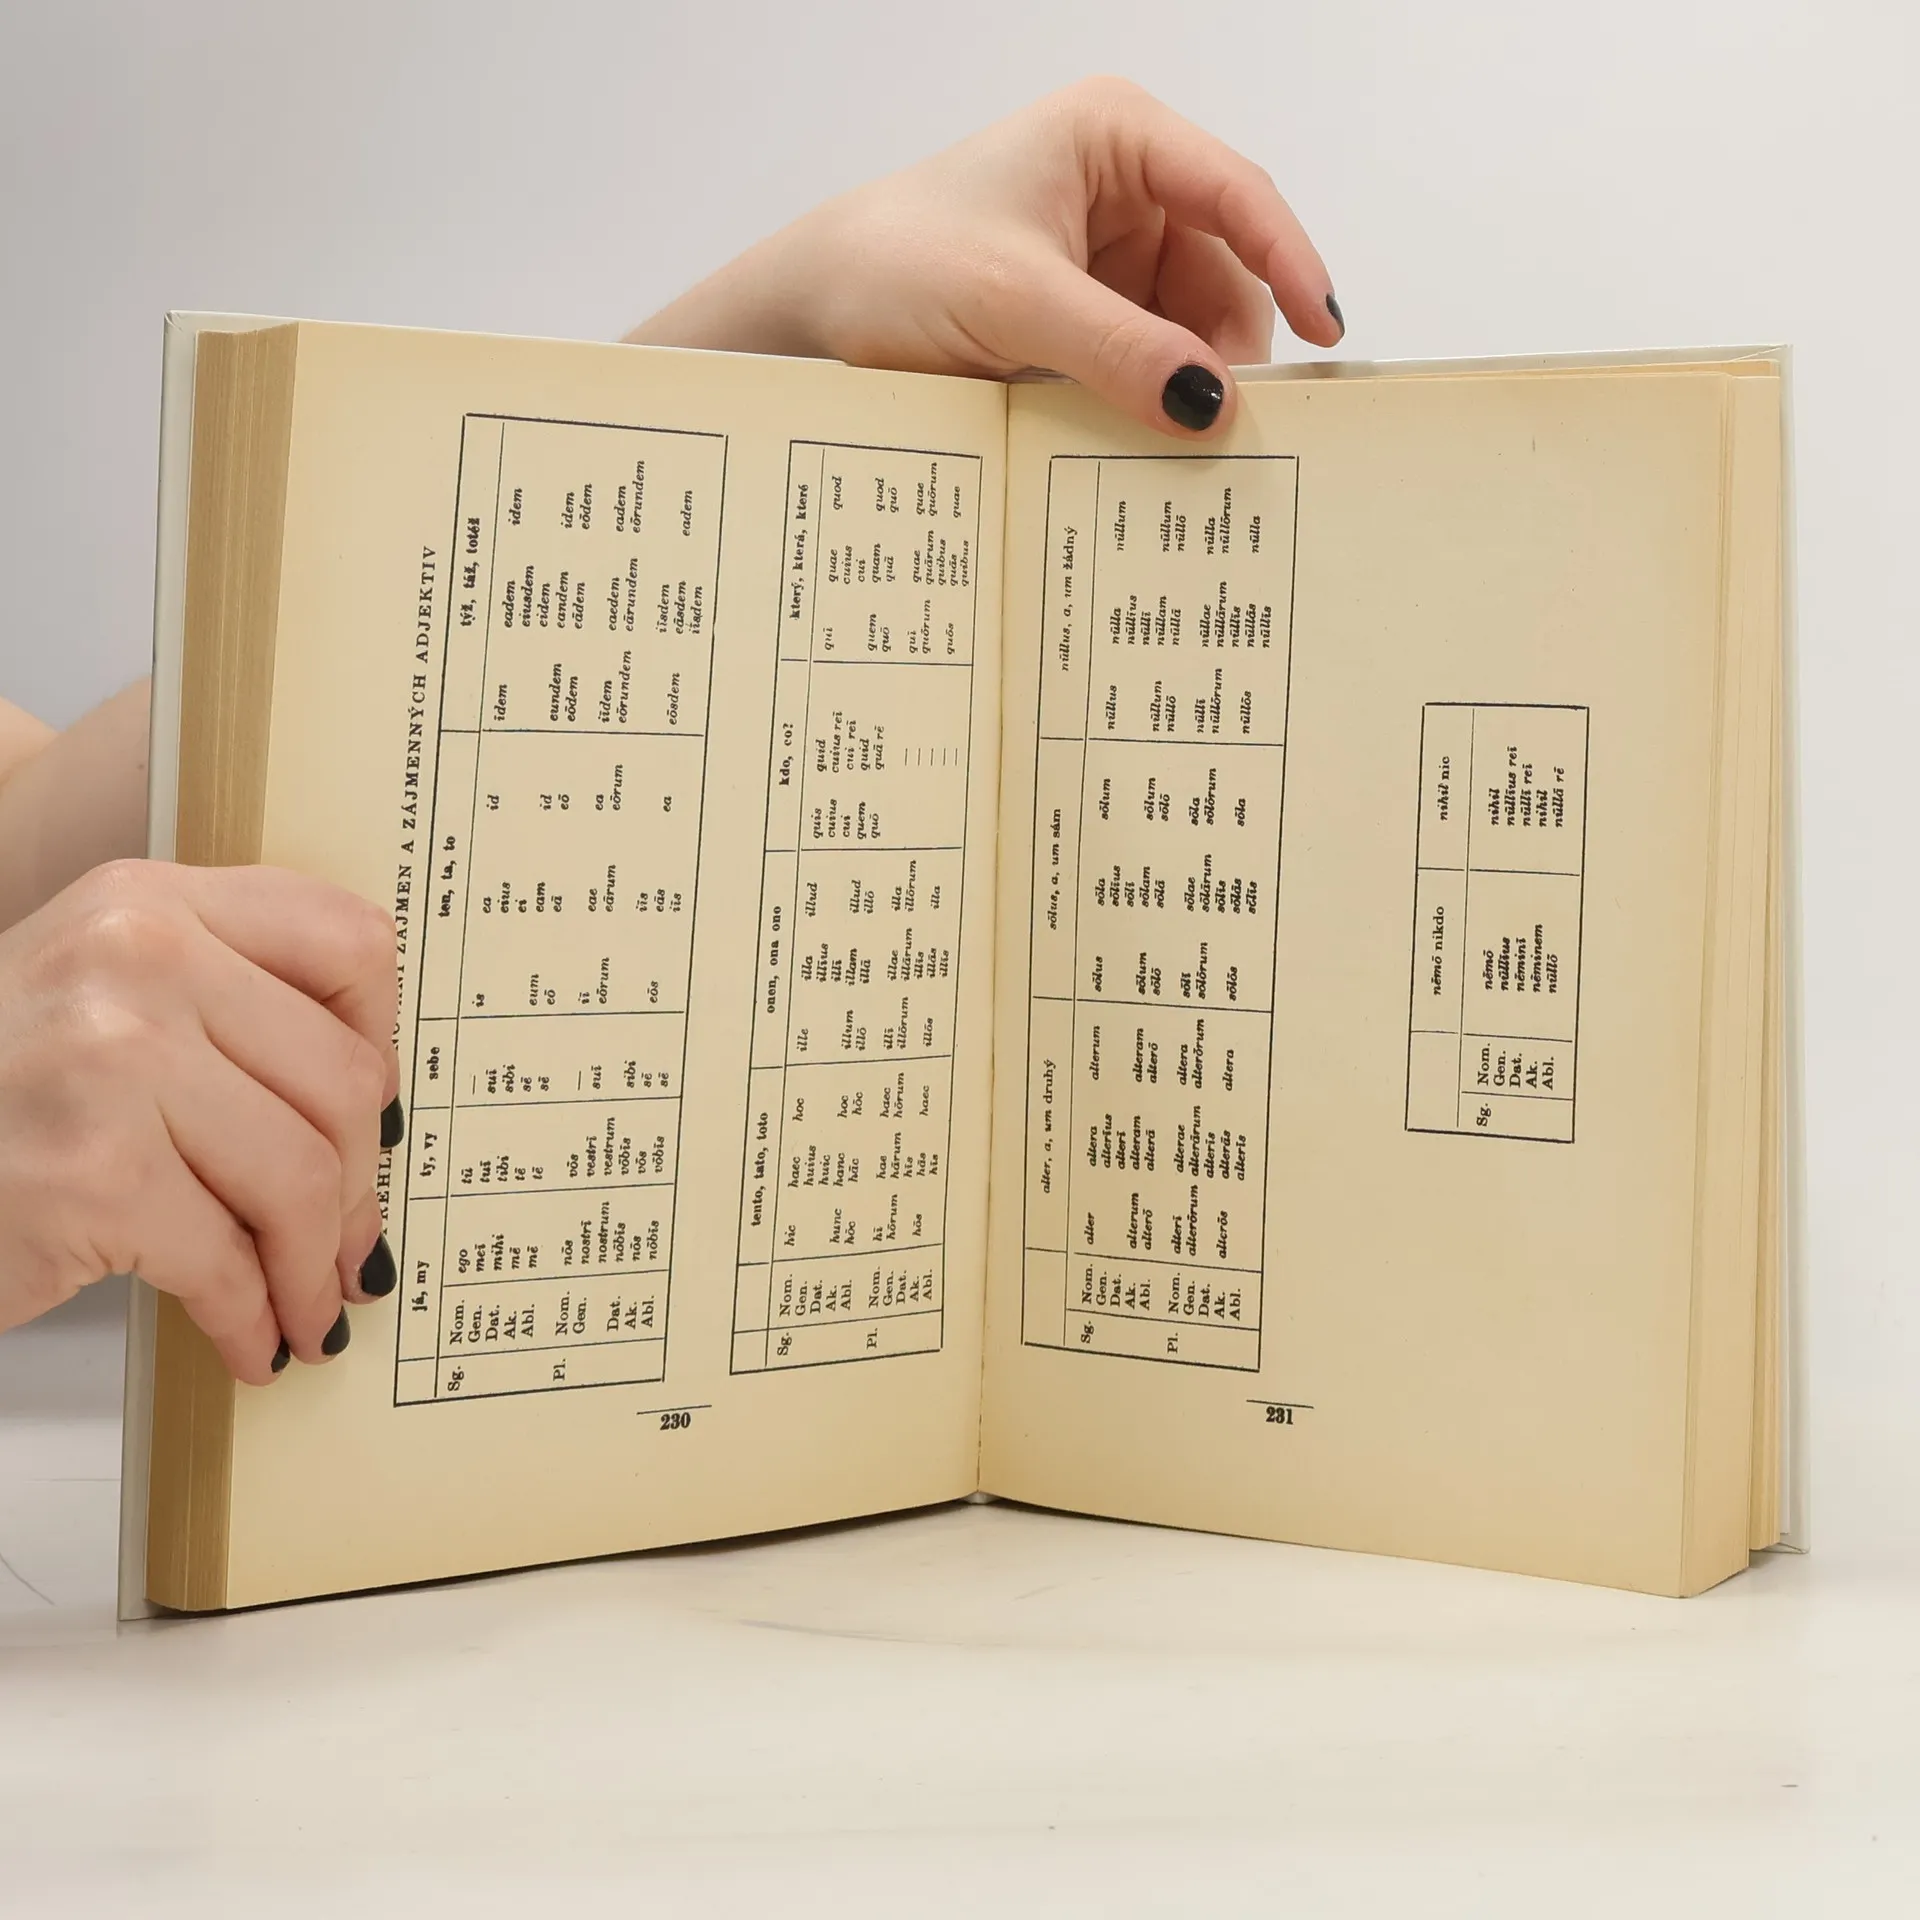 ZÁJMEN A ZÁJMENNÝCH ADJEKTIV
já, my ty, vy sebe ten, ta, to týž, táž, totéž
Sg. Nom. ego tū — is ea id īdem eadem idem
Gen. meī tuī suī eius eiusdem
Dat. mihi tibi sibi ei eidem
Ak. mē tē sē eum eam id eundem eandem idem
Abl. mē tē sē eō eā eō eōdem eādem eōdem
Pl. Nom. nōs vōs — iī eae ea iīdem eaedem eadem
Gen. nostrī vestrī suī eōrum eārum eōrum eōrundem eārundem eōrundem
nostrum vestrum
Dat. nōbīs vōbīs sibi iīs iīsdem
Ak. nōs vōs sē eōs eās ea eōsdem eāsdem eadem
Abl. nōbīs vōbīs sē iīs iīsdem
tento, tato, toto onen, ona ono kdo, co? který, která, které
Sg. Nom. hic haec hoc ille illa illud quis quid quī quae quod
Gen. huius illīus cuius cuius reī cuius
Dat. huic illī cui cui reī cui
Ak. hunc hanc hoc illum illam illud quem quid quem quam quod
Abl. hōc hāc hōc illō illā illō quō quā rē quō quā quō
Pl. Nom. hī hae haec illī illae illa — quī quae quae
Gen. hōrum hārum hōrum illōrum illārum illōrum — quōrum quārum quōrum
Dat. hīs illīs — quibus
Ak. hōs hās haec illōs illās illa — quōs quās quae
Abl. hīs illīs quibus
230
alter, a, um druhý sōlus, a, um sám nūllus, a, um žádný
Sg. Nom. alter altera alterum sōlus sōla sōlum nūllus nūlla nūllum
Gen. alterīus sōlīus nūllīus
Dat. alterī sōlī nūllī
Ak. alterum alteram alteram sōlum sōlam sōlum nūllum nūllam nūllum
Abl. alterō alterā alterō sōlō sōlā sōlō nūllō nūllā nūllō
Pl. Nom. alterī alterae altera sōlī sōlae sōla nūllī nūllae nūlla
Gen. alterōrum alterārum alterōrum sōlōrum sōlārum sōlōrum nūllōrum nūllārum nūllōrum
Dat. alterīs sōlīs nūllīs
Ak. alterōs alterās altera sōlōs sōlās sōla nūllōs nūllās nūlla
Abl. alterīs sōlīs nūllīs
nēmō nikdo nihil nic
Sg. Nom. nēmō nihil
Gen. nūllīus nūllīus reī
Dat. nēminī nūllī reī
Ak. nēminem nihil
Abl. nūllō nūllā rē
231